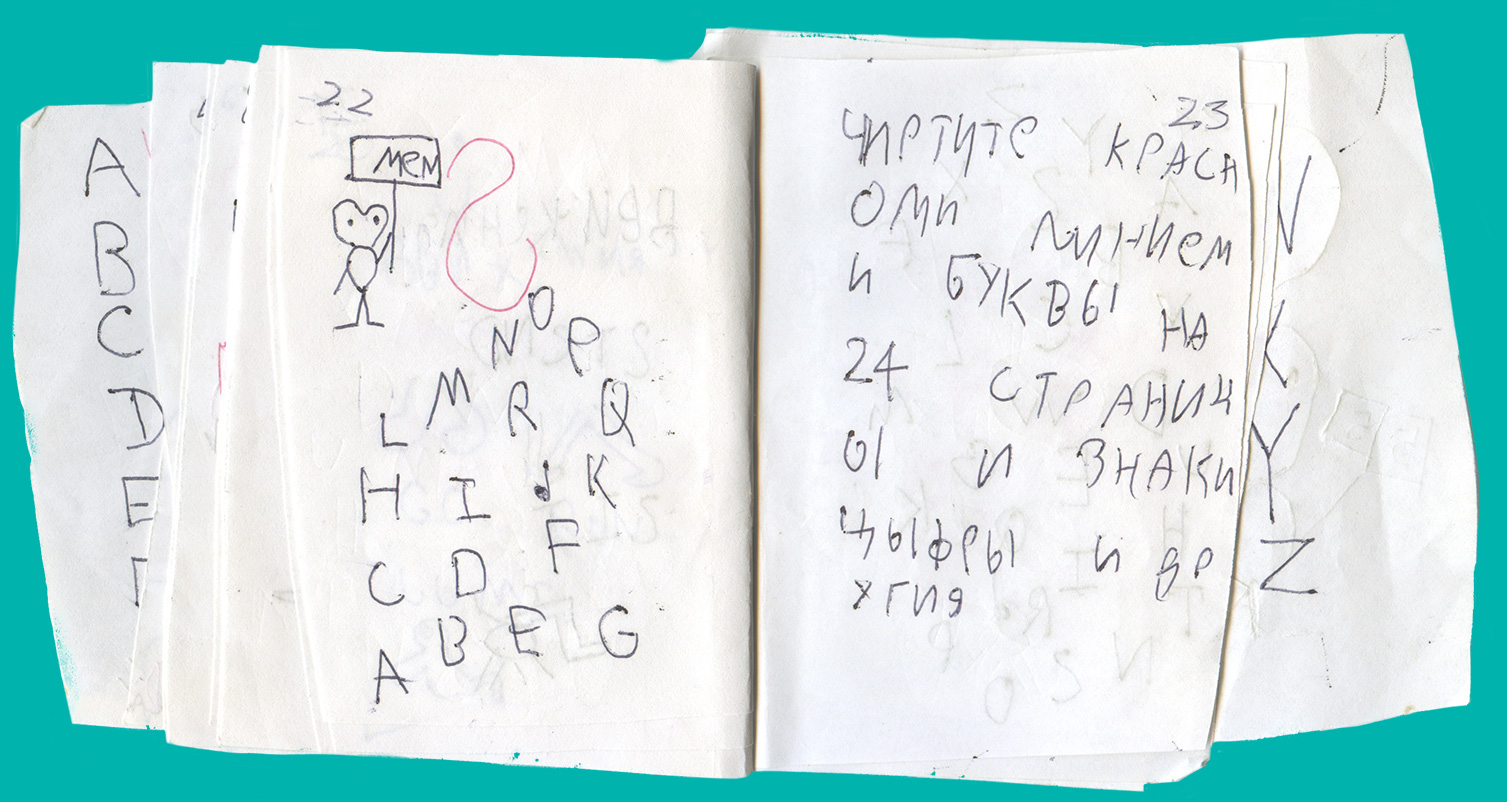 A
B
C
D
E
22
мем
N O P
L M R Q
H I J K
C D F
A B E G
23
ЧИРТИТЕ КРАСН
ОМИ ЛИНИЕМ
И БУКВЫ НА
24 СТРАНИЦ
Ы И ЗНАКИ
ЦЫФРЫ И ДР
УГИЯ
Y
Z